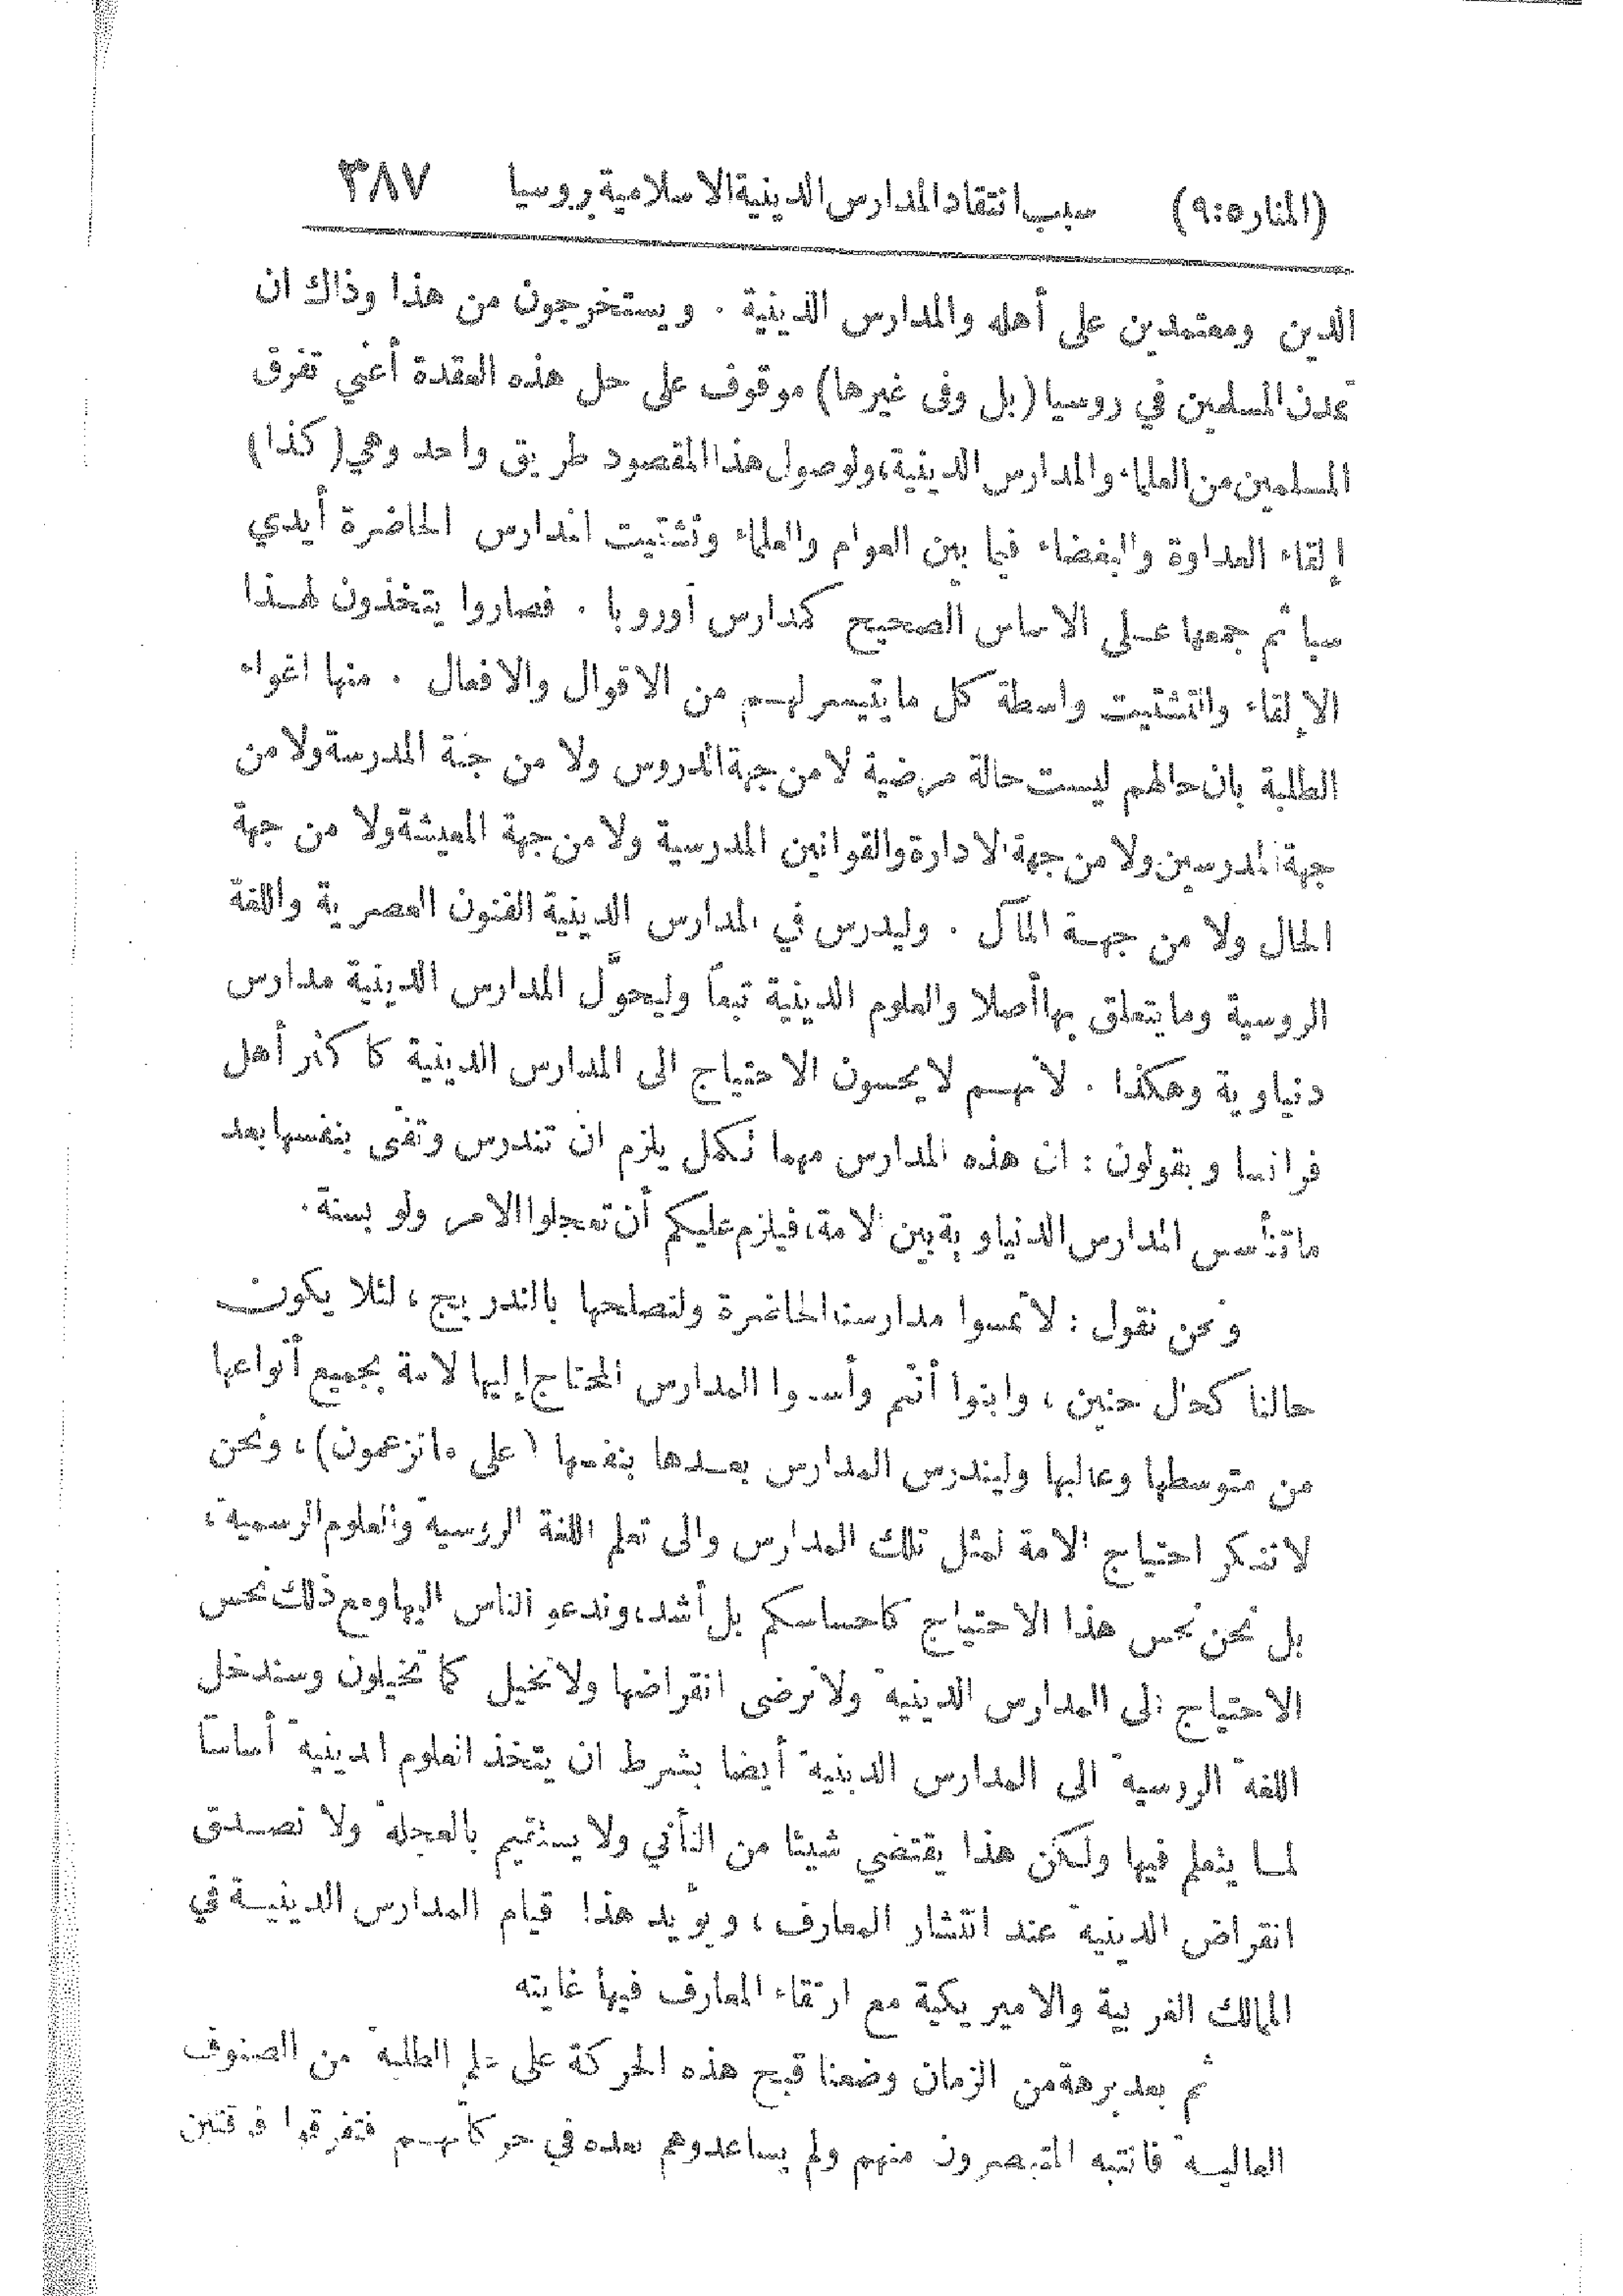 (المنار ٥ : ٩) سبب انتقاد المدارس الدينية الاسلامية بروسيا ٣٨٧
الدين ومعتمدين على أهله والمدارس الدينية . ويستخرجون من هذا وذاك ان
تمدن المسلمين في روسيا (بل وفى غيرها) موقوف على حل هذه العقدة أعني تفرق
المسلمين من العلماء والمدارس الدينية، ولوصول هذا المقصود طريق واحد وهي (كذا)
إلقاء العداوة والبغضاء فيما بين العوام والعلماء وتشتيت المدارس الحاضرة أيدي
سبا ثم جمعها على الاساس الصحيح كمدارس أوروبا . فصاروا يتخذون لهذا
الإلقاء والتشتيت واسطة كل ما يتيسر لهم من الاقوال والافعال . منها اغواء
الطلبة بان حالهم ليست حالة مرضية لا من جهة الدروس ولا من جهة المدرسة ولا من
جهة المدرسين ولا من جهة الادارة والقوانين المدرسية ولا من جهة المعيشة ولا من جهة
الحال ولا من جهة المآل . وليدرس في المدارس الدينية الفنون العصرية واللغة
الروسية وما يتعلق بها أصلا والعلوم الدينية تبعاً وليحوَّل المدارس الدينية مدارس
دنياوية وهكذا . لانهم لا يحسون الاحتياج الى المدارس الدينية كاكثر أهل
فرانسا ويقولون : ان هذه المدارس مهما تكمل يلزم ان تندرس وتفنى بنفسها بعد
ما تتأسس المدارس الدنياوية بين الامة، فيلزم عليكم أن تعجلوا الامر ولو بسنة .
ونحن نقول : لا تمسوا مدارسنا الحاضرة ولنصلحها بالتدريج ، لئلا يكون
حالنا كحال حنين ، وابنوا أنتم وأسسوا المدارس المحتاج إليها لامة بجميع أنواعها
من متوسطها وعاليها وليندرس المدارس بعدها بنفسها (على ما تزعمون) ، ونحن
لا ننكر احتياج الامة لمثل تلك المدارس والى تعلم اللغة الروسية والعلوم الرسمية ،
بل نحن نحس هذا الاحتياج كاحساسكم بل أشد، وندعو الناس اليها ومع ذلك نحس
الاحتياج إلى المدارس الدينية ولا نرضى انقراضها ولا نخيل كما تخيلون وسندخل
اللغة الروسية الى المدارس الدينية أيضا بشرط ان يتخذ العلوم الدينية أساساً
لما يتعلم فيها ولكن هذا يقتضي شيئا من التأني ولا يستقيم بالعجلة ولا نصدق
انقراض الدينية عند انتشار المعارف ، ويؤيد هذا قيام المدارس الدينية في
الممالك الغربية والاميريكية مع ارتقاء المعارف فيها غايته
ثم بعد برهة من الزمان وضعنا قبح هذه الحركة على علم الطلبة من الصنوف
العالية فانتبه المتبصرون منهم ولم يساعدوهم بعده في حركاتهم فتفرقوا فرقتين